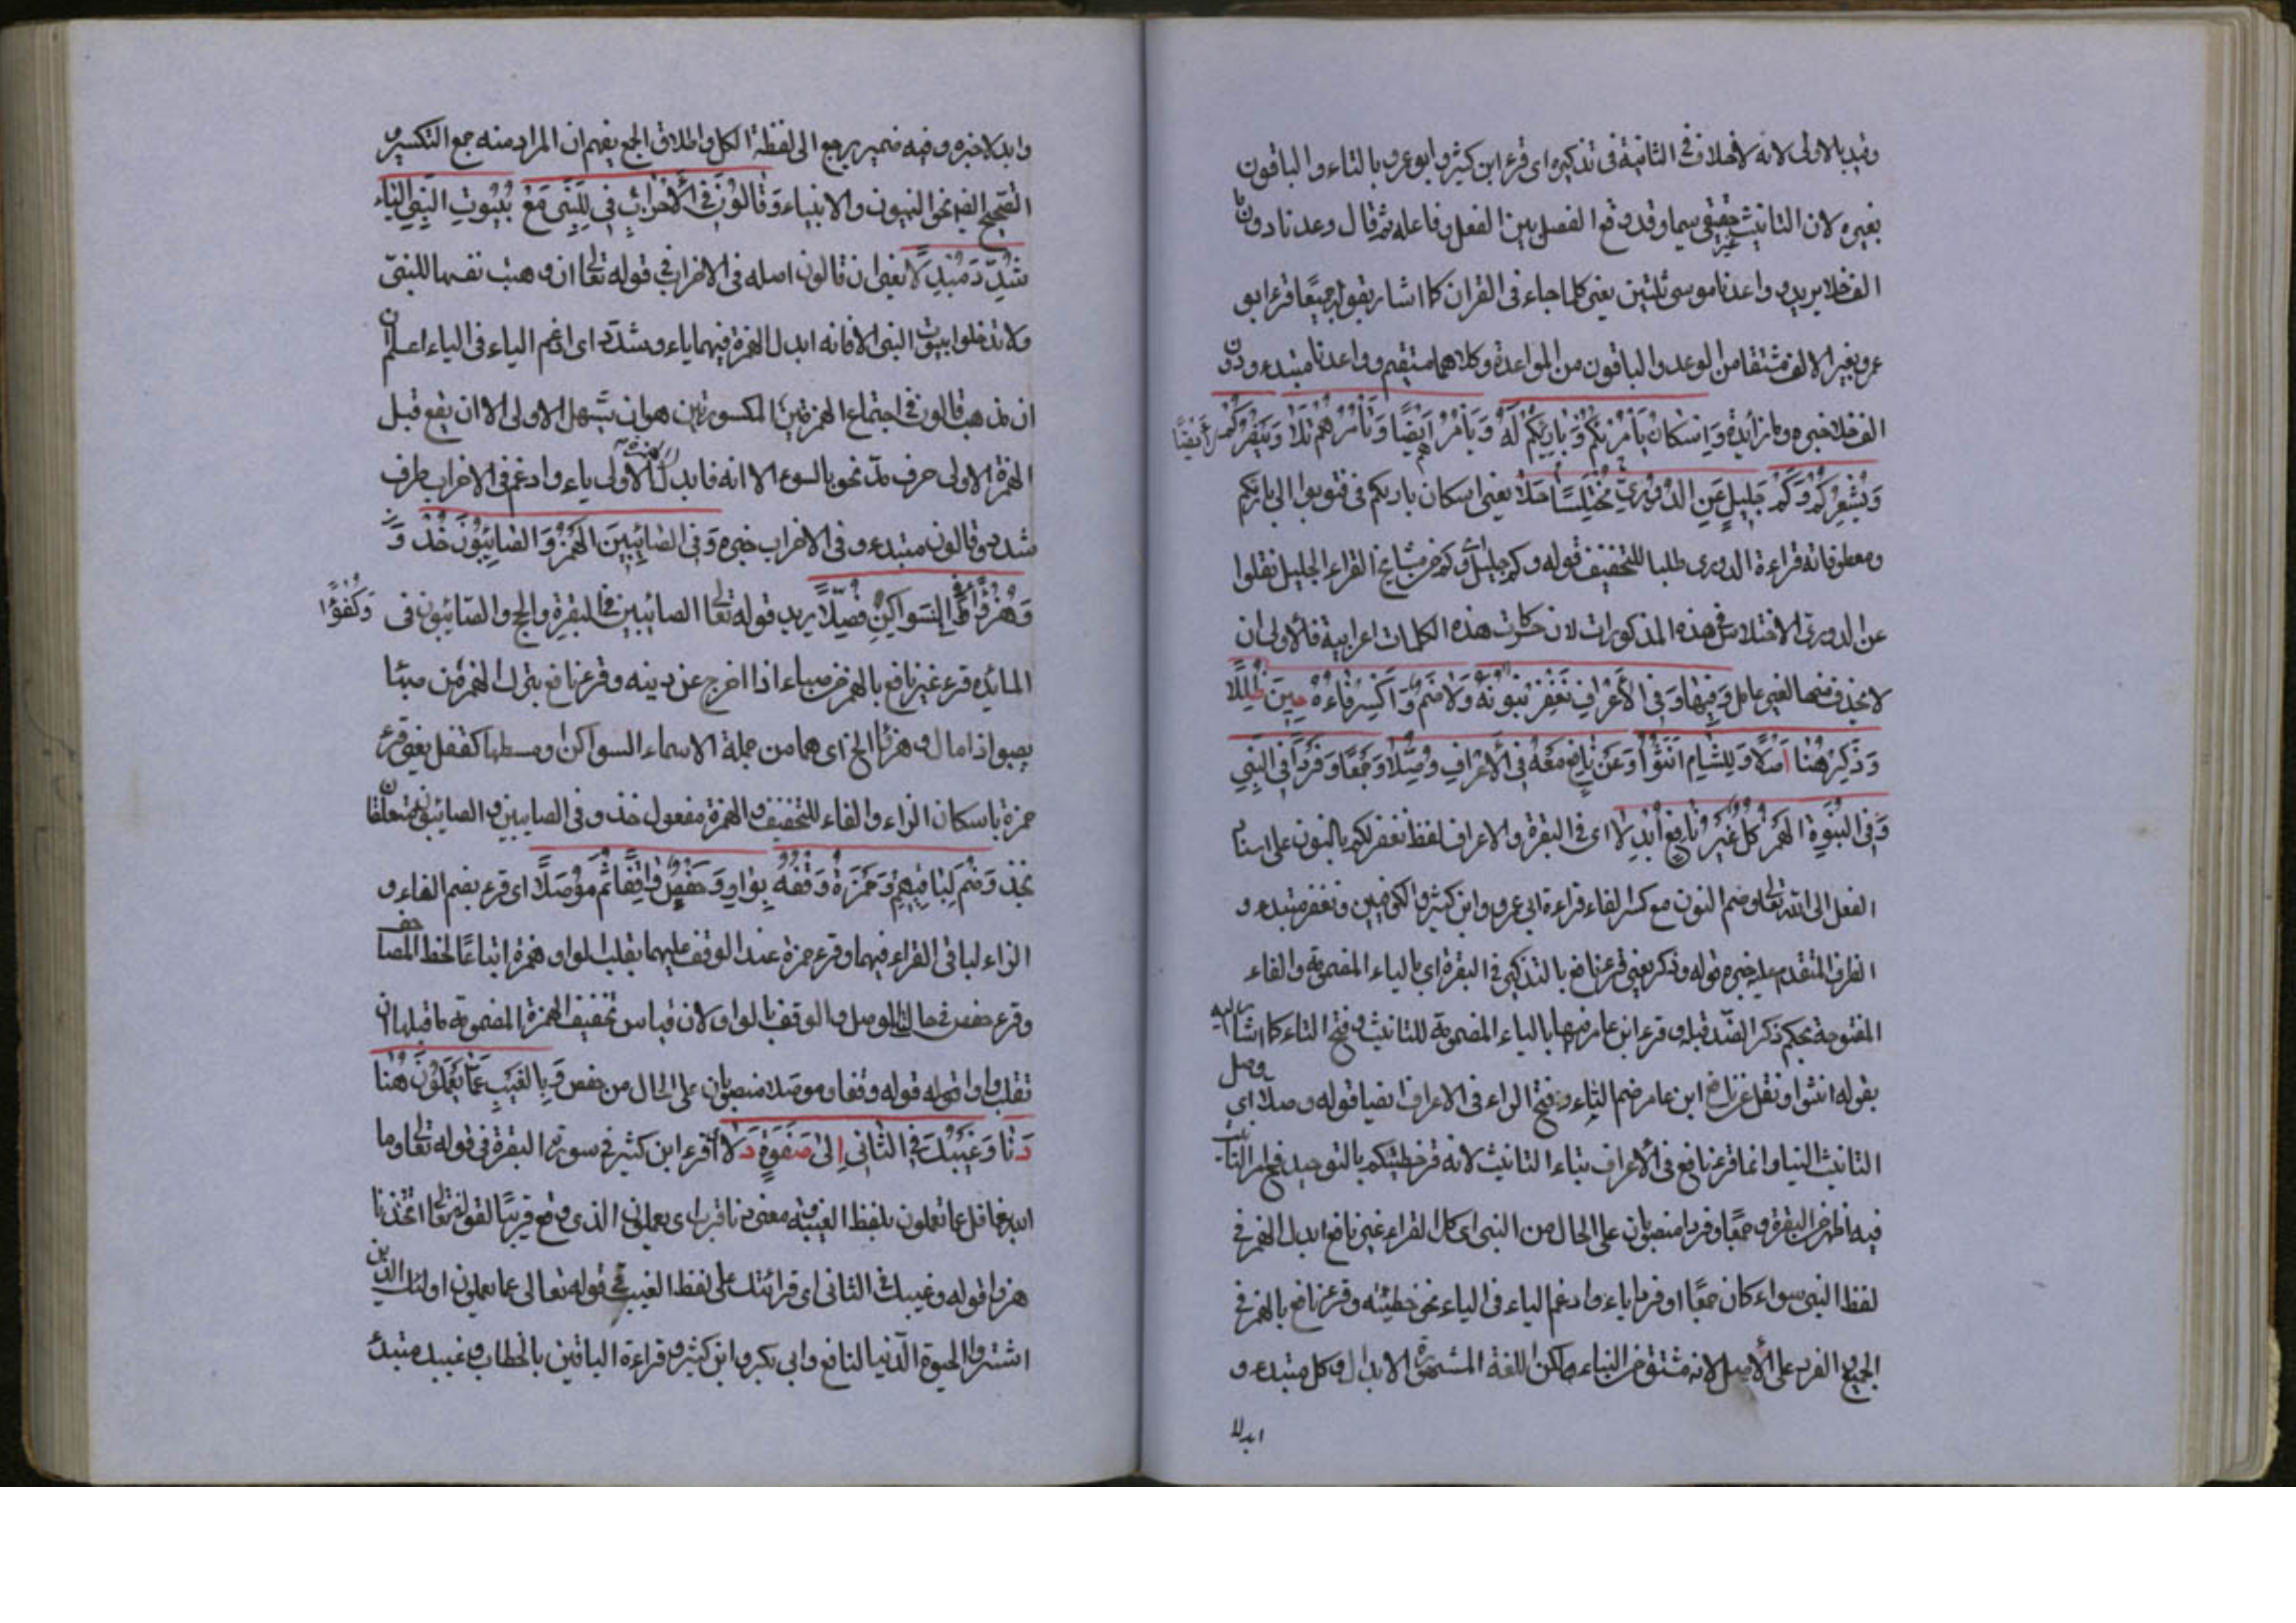 وقيد بالاولى لانه لا خلاف فى الثانية فى تذكيره اى قرء ابن كثير وابو عمرو بالتاء والباقون
بغيره لان التانيث غير حقيقى سيما وقد وقع الفصل بين الفعل وفاعله ثم قال وعدنا دون ما
الف حلا يريد واعدنا موسى ثلثين يعنى كلما جاء فى القران كما اشار بقوله جميعًا قرء ابو
عمرو بغير الالف مشتقا من الوعد والباقون من المواعدة وكلاهما مستقيم وواعدنا مبتدء ودون
الف حلا خبره وما زايدة وَاِسْكَانُ بَارِئِكُمْ وَيَأْمُرُكُمْ لَهُ وَيَأْمُرُهُمْ اَيْضًا وَتَأْمُرُهُمْ تَلَا وَيَنْصُرُكُمْ اَيْضًا
وَيُشْعِرُكُمْ وَكَمْ جَلِيلٍ عَنِ الدُّورِيِّ مُخْتَلِسًا جَلَا يعنى اسكان بارئكم فى فتوبوا الى بارئكم
ومعطوفاته قراءة الدورى طلبا للتخفيف قوله وكم جليل وكم من مشايخ القراء الجليل نقلوا
عن الدورى الاختلاس فى هذه المذكورات لان حركات هذه الكلمات اعرابية فالاولى ان
لا يحذف منها لغير عامل وَفِيهَا وَفِى الْاَعْرَافِ نَغْفِرْ بِنُونِهِ وَلَا ضَمَّ وَاكْسِرْ فَاءَهُ حِينَ ظَلَّلَا
وَذَكِّرْ هُنَا اَصْلًا وَلِلشَّامِ اَنَّثُوا وَعَنْ نَافِعٍ مَعْهُ فِى الْاَعْرَافِ وُصِّلَا وَجَمْعًا وَفَرْدًا فِى النَّبِىِّ
وَفِى النُّبُوَّةِ الْهَمْزَ كُلٌّ غَيْرَ نَافِعٍ اَبْدَلَا اى فى البقرة والاعراف لفظ نغفر لكم بالنون على اسناد
الفعل الى الله تعالى وضم النون مع كسر الفاء قراءة ابى عمرو وابن كثير والكوفيين ونغفر مبتدء و
الظرف المتقدم عليه خبره قوله وذكر يعنى قرء نافع بالتذكير فى البقرة اى بالياء المضمومة والفاء
المفتوحة بحكم ذكر الضد قبله وقرء ابن عامر فيها بالتاء المضمومة للتانيث وفتح الفاء كما اشار اليه
بقوله انثوا ونقل عن نافع ابن عامر ضم التاء وفتح الراء فى الاعراف ايضا قوله وصلا اى وصل
التانيث الينا وانما قرء نافع فى الاعراف بتاء التانيث لانه قرء خطيئتكم بالتوحيد
فيه اظهر من البقرة وجمعًا وفردا منصوبان على الحال من النبى اى كل القراء غير نافع ابدل الهمز فى
لفظ النبى سواء كان جمعًا او فردا ياء وادغم الياء فى الياء نحو خطيئته وقرء نافع بالهمز فى
الجمع والفرد على الاصل لانه مشتق من النباء ولكن اللغة المشهورة الابدال وكل مبتدء و
ابدلا
وابدلا خبره وفيه ضمير يرجع الى لفظة الكل واطلاق الجمع يفهم ان المراد منه جمع التكسير و
الصحيح ايضا نحو النبيون والانبياء وَقَالُونُ فِى الْاَحْزَابِ فِى لِلنَّبِىِّ مَعْ بُيُوتِ النَّبِىِّ الْيَاءَ
شَدَّدَ مُبْدِلًا يعنى ان قالون اصله فى الاحزاب فى قوله تعالى ان وهبت نفسها للنبىّ
ولا تدخلوا بيوت النبى الا فانه ابدل الهمزة فيهما ياء وشدّد اى ادغم الياء فى الياء اعلم ان
ان مذهب قالون فى اجتماع الهمزتين المكسورتين هو ان يسهل الاولى الا ان يقع قبل
الهمزة الاولى حرف مدّ نحو بالسوء الا انه فابدل الاولى ياء وادغم فى الاحزاب طرف
شدد وقالون مبتدء وفى الاحزاب خبره وَفِى الصَّابِئِينَ الْهَمْزُ وَالصَّابِئُونَ خُذْ وَ
وَهُزْؤًا وَكُفْؤًا فِى السَّوَاكِنِ فُصِّلَا يريد قوله تعالى الصابئين فى البقرة والحج والصابئون فى
المائدة قرء غير نافع بالهمز من صباء اذا خرج عن دينه وقرء نافع بترك الهمز من صبا
يصبو اذا مال وهزؤا الخ اى هما من جملة الاسماء السواكن وسطها كقفل يعنى قرء
حمزة باسكان الزاء والفاء للتخفيف والهمزة مفعول خذ وفى الصابئين والصابئون متعلقان
بخذ وَضُمَّ لِبَاقِيهِمْ وَحَمْزَةُ وَقْفُهُ بِوَاوٍ وَحَفْصٌ وَاقِفًا ثُمَّ مُوصِلَا اى قرء بضم الفاء و
الزاء لباقى القراء فيهما وقرء حمزة عند الوقف عليهما بقلب الواو همزة اتباعًا لخط المصاحف
وقرء حفص فى حالتى الوصل والوقف بالواو لان قياس تخفيف الهمزة المضمومة ما قبلها ان
تقلب واوا قوله قوله وقفا وموصلا منصوبان على الحال من حفص وَبِالْغَيْبِ عَمَّا يَعْمَلُونَ هُنَا
دَنَا وَغَيْبُكَ فِى الثَّانِى اِلَى صَفْوِهِ دَلَا اقرء ابن كثير فى سورة البقرة فى قوله تعالى وما
الله بغافل عما تعملون بلفظ الغيبة ومعنى دنا قرب اى يعملون الذى وقع قريبًا لقوله تعالى اتتخذنا
هزوا قوله وغيبك فى الثانى اى قرائتك على لفظ الغيب فى قوله تعالى عما يعملون اولئك الذين
اشتروا الحيوة الدنيا لنافع وابى بكر وابن كثير وقراءة الباقين بالخطاب وغيبك مبتدئ